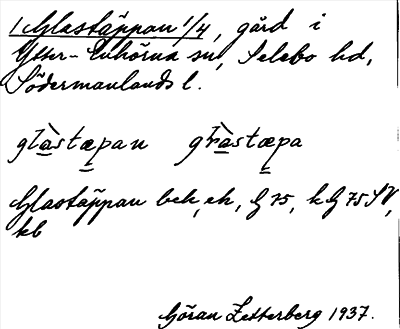 1 Glastäppan 1/4, gård i
Ytter-Enhörna sn, Selebo hd,
Södermanlands l.
glàstæpan gràstæpa
Glastäppan bek, eh, G 75, kG 75 SV,
kb
Göran Zetterberg 1937.